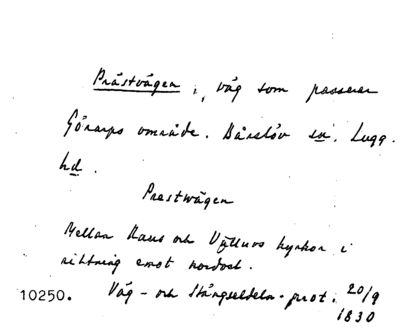 Prästvägen, väg som passerar
Görarps område. Bårslöv sn. Lugg.
hd.
Prestwägen
Mellan Raus och Välluvs kyrkor i
riktning emot nordost.
10250. Väg- och Stängseldeln. prot. 20/9
1830